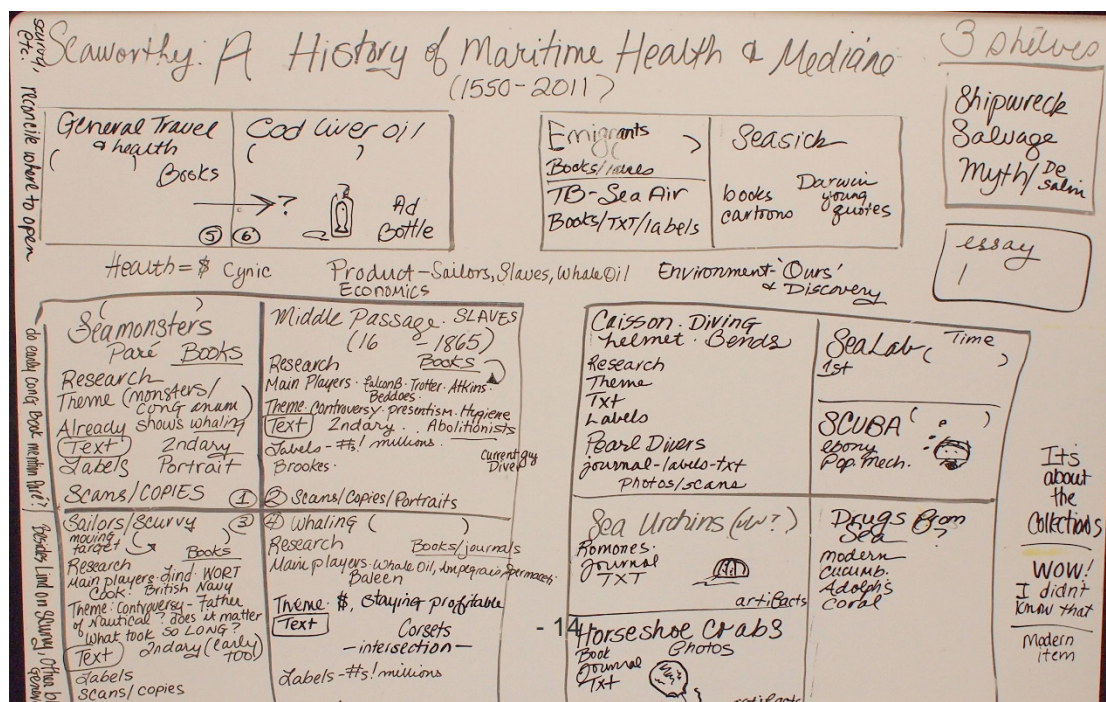 Seaworthy: A History of Maritime Health & Medicine
(1550-2011)
scurvy, etc. reconcile where to open
3 shelves
Shipwreck
Salvage
Myth/De salin
essay
1
General Travel
& health
( )
Books
5
Cod Liver oil
( )
→?
Ad
Bottle
6
Emigrants
( )
Books/
TB-Sea Air
Books/TXT/labels
Seasick
books
cartoons
Darwin
young
quotes
Health=$ Cynic
Product-Sailors, Slaves, Whale Oil
Economics
Environment-'Ours'
& Discovery
( )
Seamonsters
Paré Books
Research
Theme (monsters/
cong anam)
Already shows whaling
Text 2ndary
Labels Portrait
Scans/COPIES 1
Middle Passage. SLAVES
(16 -1865)
Research Books
Main Players. FalconB. Trotter. Atkins.
Beddoes.
Theme. Controversy. presentism. Hygiene
Text 2ndary.. Abolitionists
Labels-#s! millions.
Brookes.
Current guy
Diver
2 Scans/Copies/Portraits
do early cong book mention Paré?
Besides Lind on Scurvy, other
Sailors/Scurvy 3
moving
target ( )
Books
Research
Main players. Lind. WORT
Cook. British Navy
Theme: Controversy - Father
of Nautical? does it matter
What took SO LONG?
Text 2ndary (early
too!)
Labels
Scans/copies
4 Whaling ( )
Research Books/journals
Main players-Whale Oil, Ambergrais, Spermaceti
Baleen
Theme. $, Staying profitable
Text
Corsets
-intersection-
Labels-#s! millions
Caisson. Diving
helmet. Bends
Research
Theme
Txt
Labels
Pearl Divers
journal-labels-txt
photos/scans
SeaLab ( Time )
1st
SCUBA ( )
ebony
Pop. Mech.
Sea Urchins (UW?)
Romones.
journal
TXT
artifacts
Drugs from
Sea ?
modern
cucumb.
Adolph's
coral
- 14
Horseshoe Crabs
Book
journal
Txt
Photos
artifacts
Its
about
the
Collections
WOW!
I didn't
know that
Modern
item